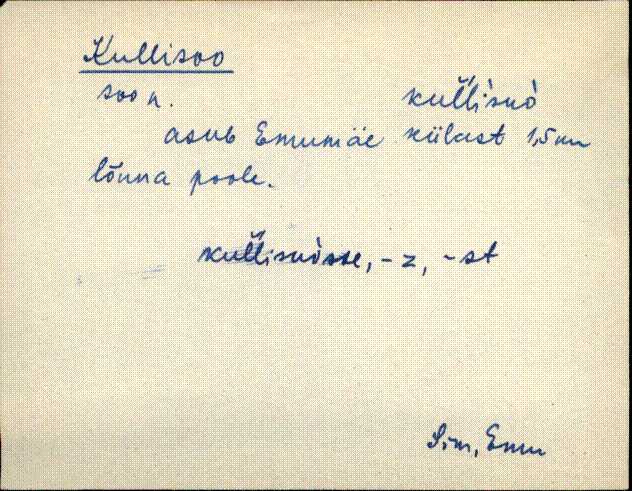 Kullisoo
soo n. kul̆l̆isuò
asub Emumäe külast 1,5 km
lõuna poole.
kul̆l̆isuòsse, -z, -st
Sim, Emu